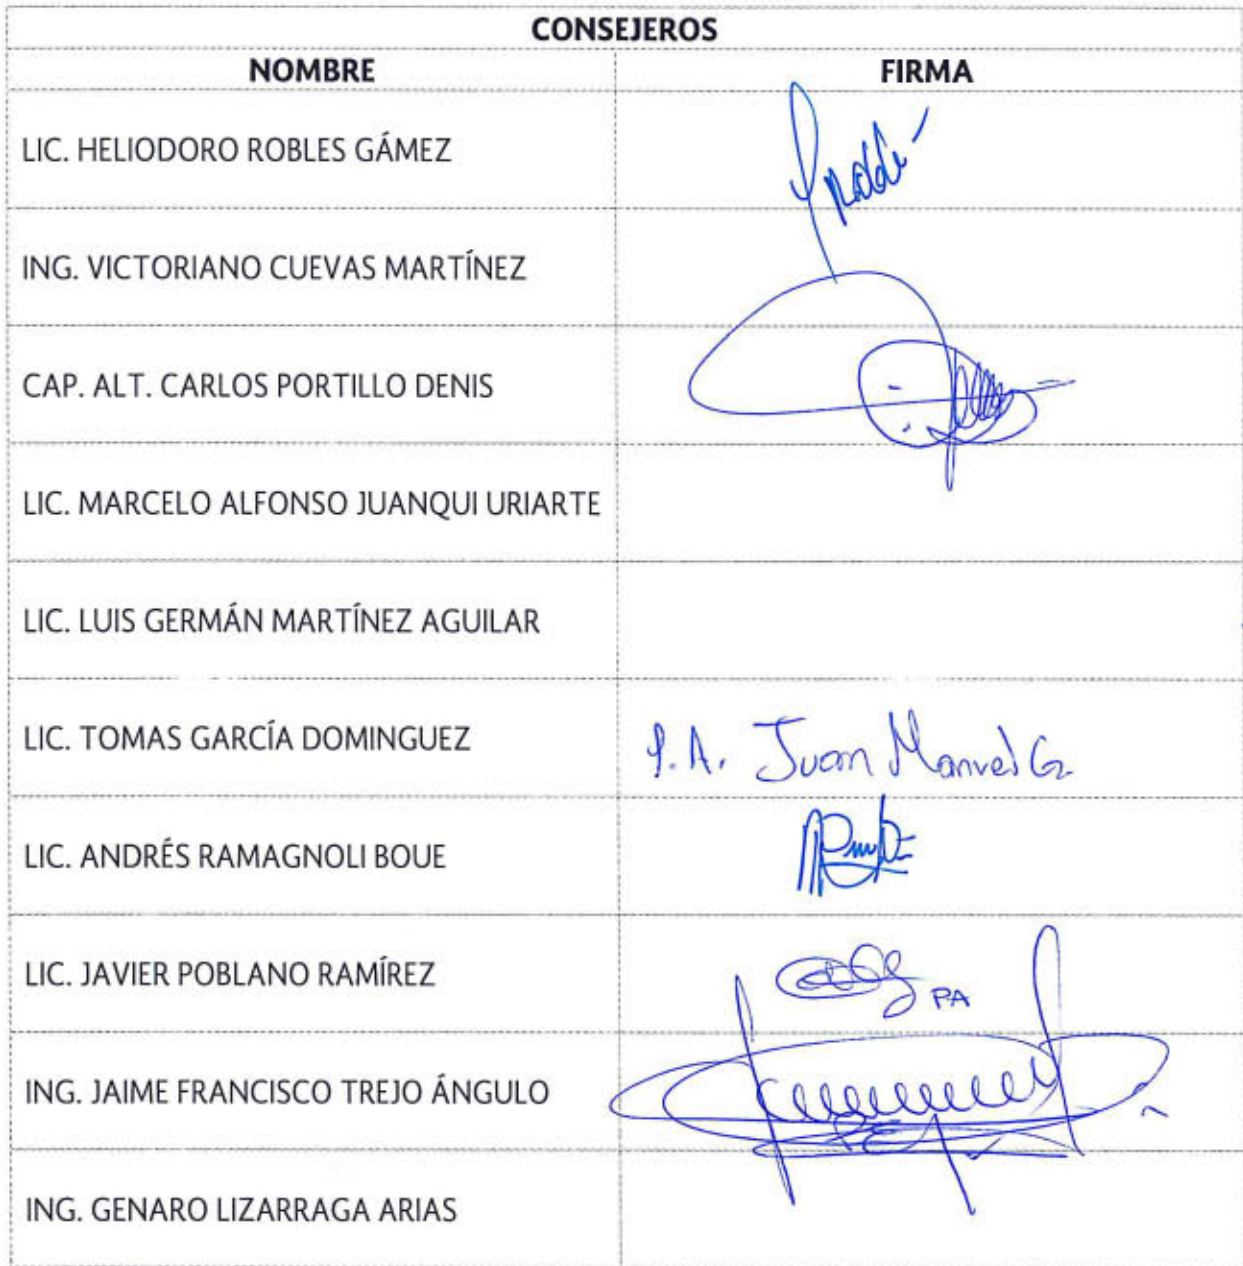 CONSEJEROS
NOMBRE FIRMA
LIC. HELIODORO ROBLES GÁMEZ
ING. VICTORIANO CUEVAS MARTÍNEZ
CAP. ALT. CARLOS PORTILLO DENIS
LIC. MARCELO ALFONSO JUANQUI URIARTE
LIC. LUIS GERMÁN MARTÍNEZ AGUILAR
LIC. TOMAS GARCÍA DOMINGUEZ P.A. Juan Manuel
LIC. ANDRÉS RAMAGNOLI BOUE
LIC. JAVIER POBLANO RAMÍREZ PA
ING. JAIME FRANCISCO TREJO ÁNGULO
ING. GENARO LIZARRAGA ARIAS